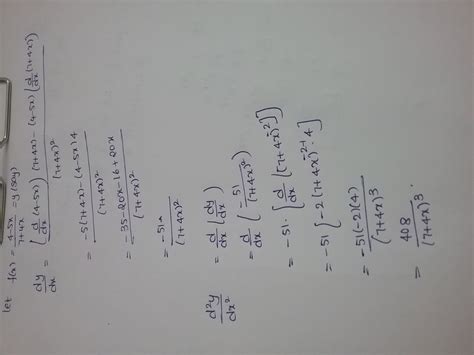 let f(x) = (4-5x)/(7+4x) = y (say)
dy/dx = ((d/dx (4-5x)) (7+4x) - (4-5x) (d/dx (7+4x)))/(7+4x)²
= (-5(7+4x) - (4-5x)4)/(7+4x)²
= (-35-20x-16+20x)/(7+4x)²
= -51/(7+4x)²
d²y/dx² = d/dx (dy/dx)
= d/dx (-51/(7+4x)²)
= -51 · [d/dx [7+4x]⁻²]
= -51 [-2 (7+4x)⁻²⁻¹ · 4]
= -51(-2)(4)/(7+4x)³
= 408/(7+4x)³ ·